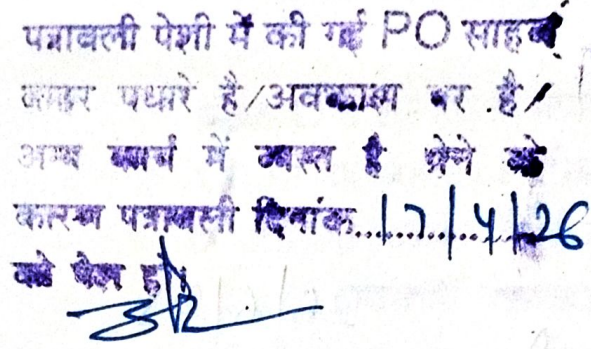 पत्रावली पेशी में की गई PO साहब
बाहर पधारे है/अवकाश पर है/
अन्य कार्य में व्यस्त है होने के
कारण पत्रावली दिनांक.....17/4/26
को पेश हो।